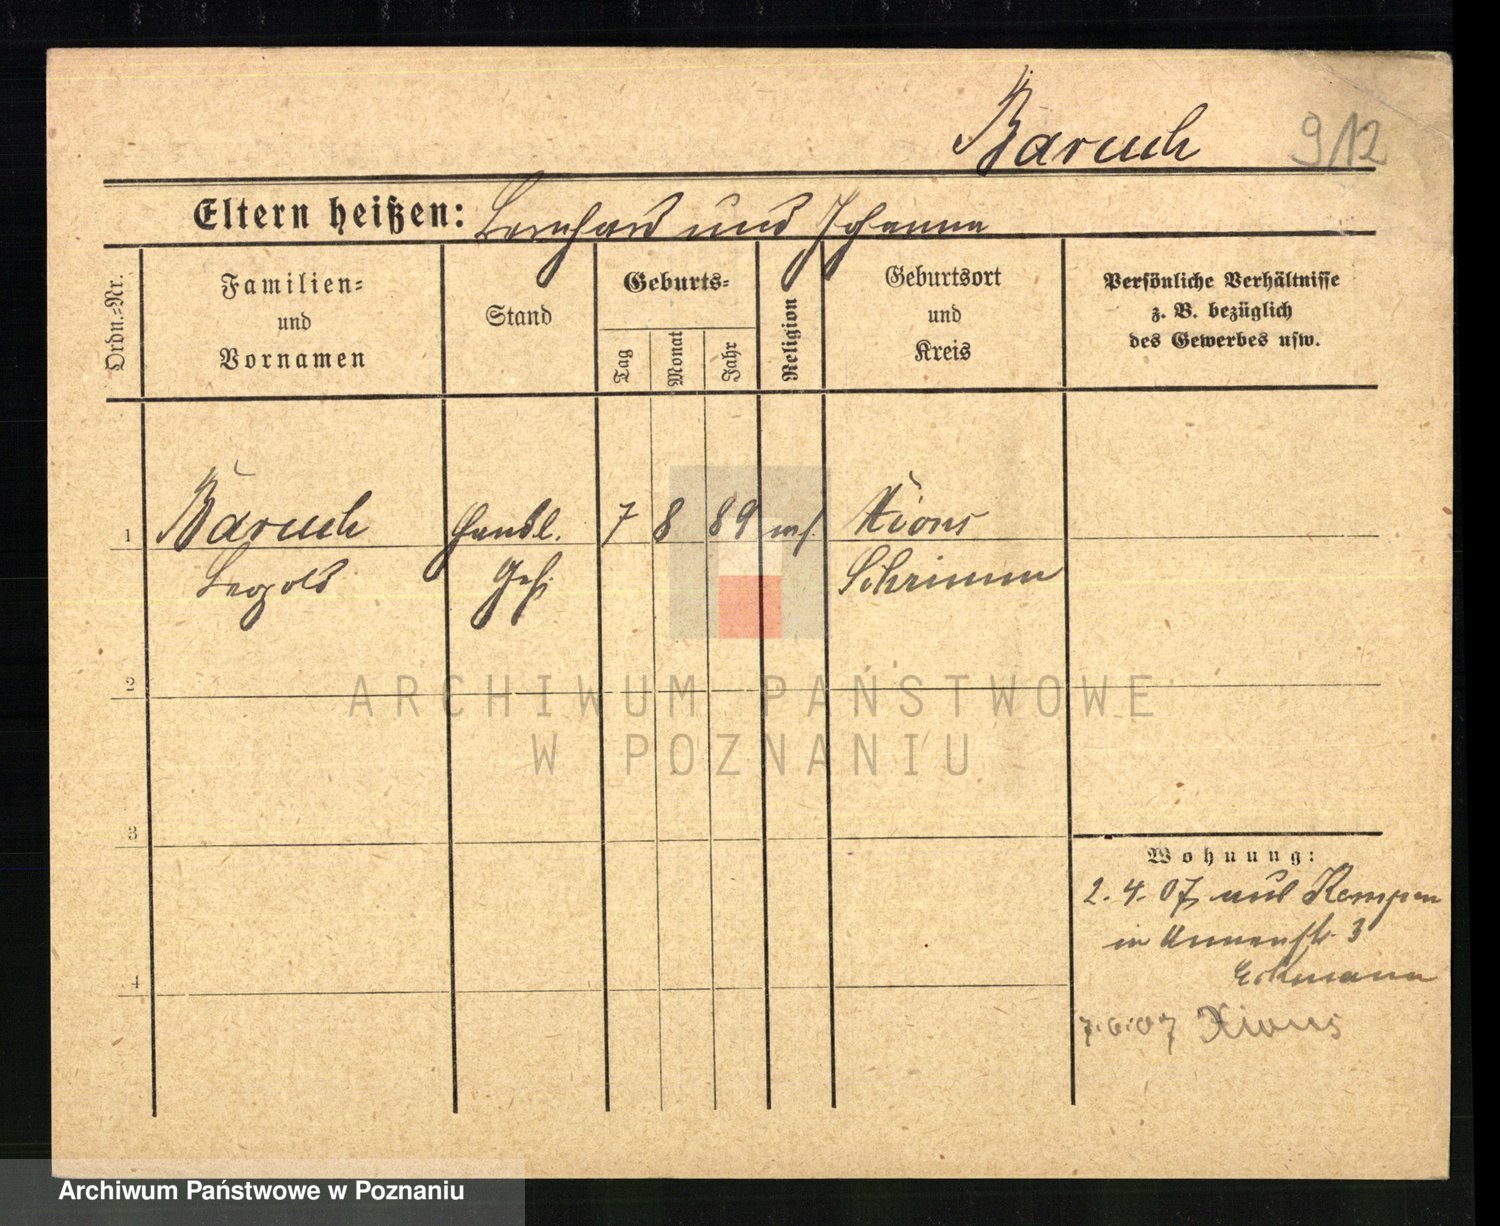 Baruch 912
Eltern heißen: Bernhard und Johanna
Ordn.-Nr.
Familien-
und
Vornamen
Stand
Geburts-
Tag
Monat
Jahr
Religion
Geburtsort
und
Kreis
Persönliche Verhältnisse
z. B. bezüglich
des Gewerbes usw.
1 Baruch Handl. 7 8 89 mos. Xions
Leopold Geh. Schrimm
2
3
4
Wohnung:
2. 4. 07 aus Kempen
in Annenstr. 3
Eckmann
7.6.07 Xions
ARCHIWUM PAŃSTWOWE
W POZNANIU
Archiwum Państwowe w Poznaniu